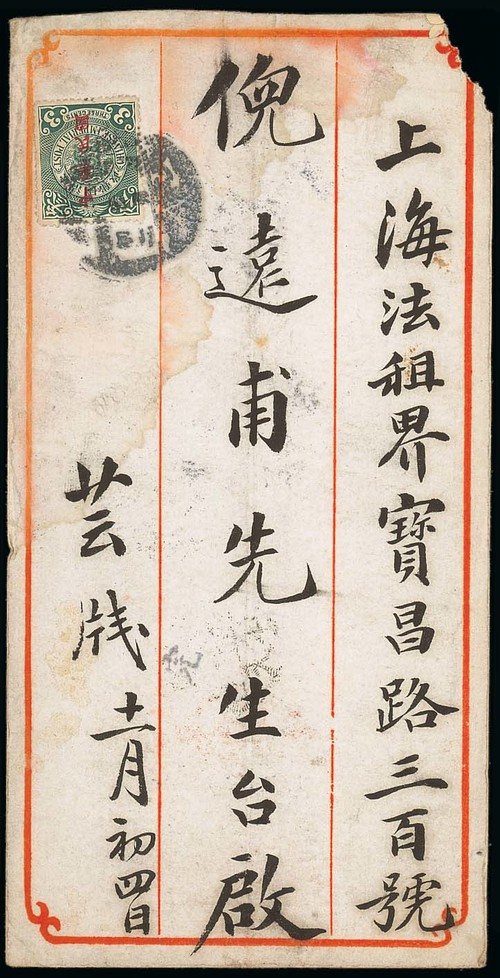 上海法租界寶昌路三百號
倪遠甫先生台啟
芸牋
十一月初四日
THREE CENTS